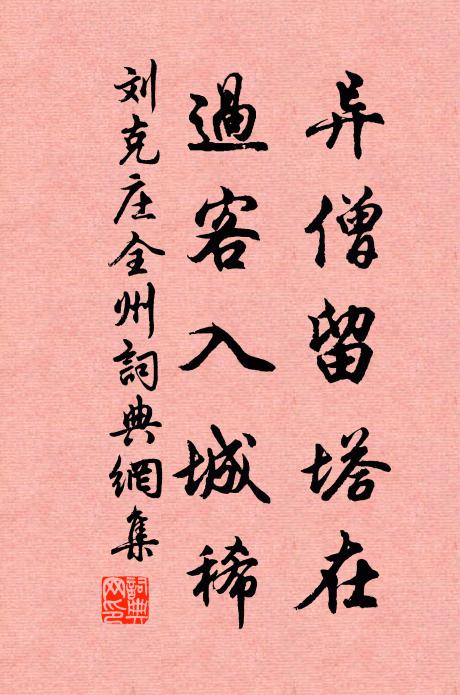 异僧留塔在
過客入城稀
刘克庄全州詞典網集
詞典网印